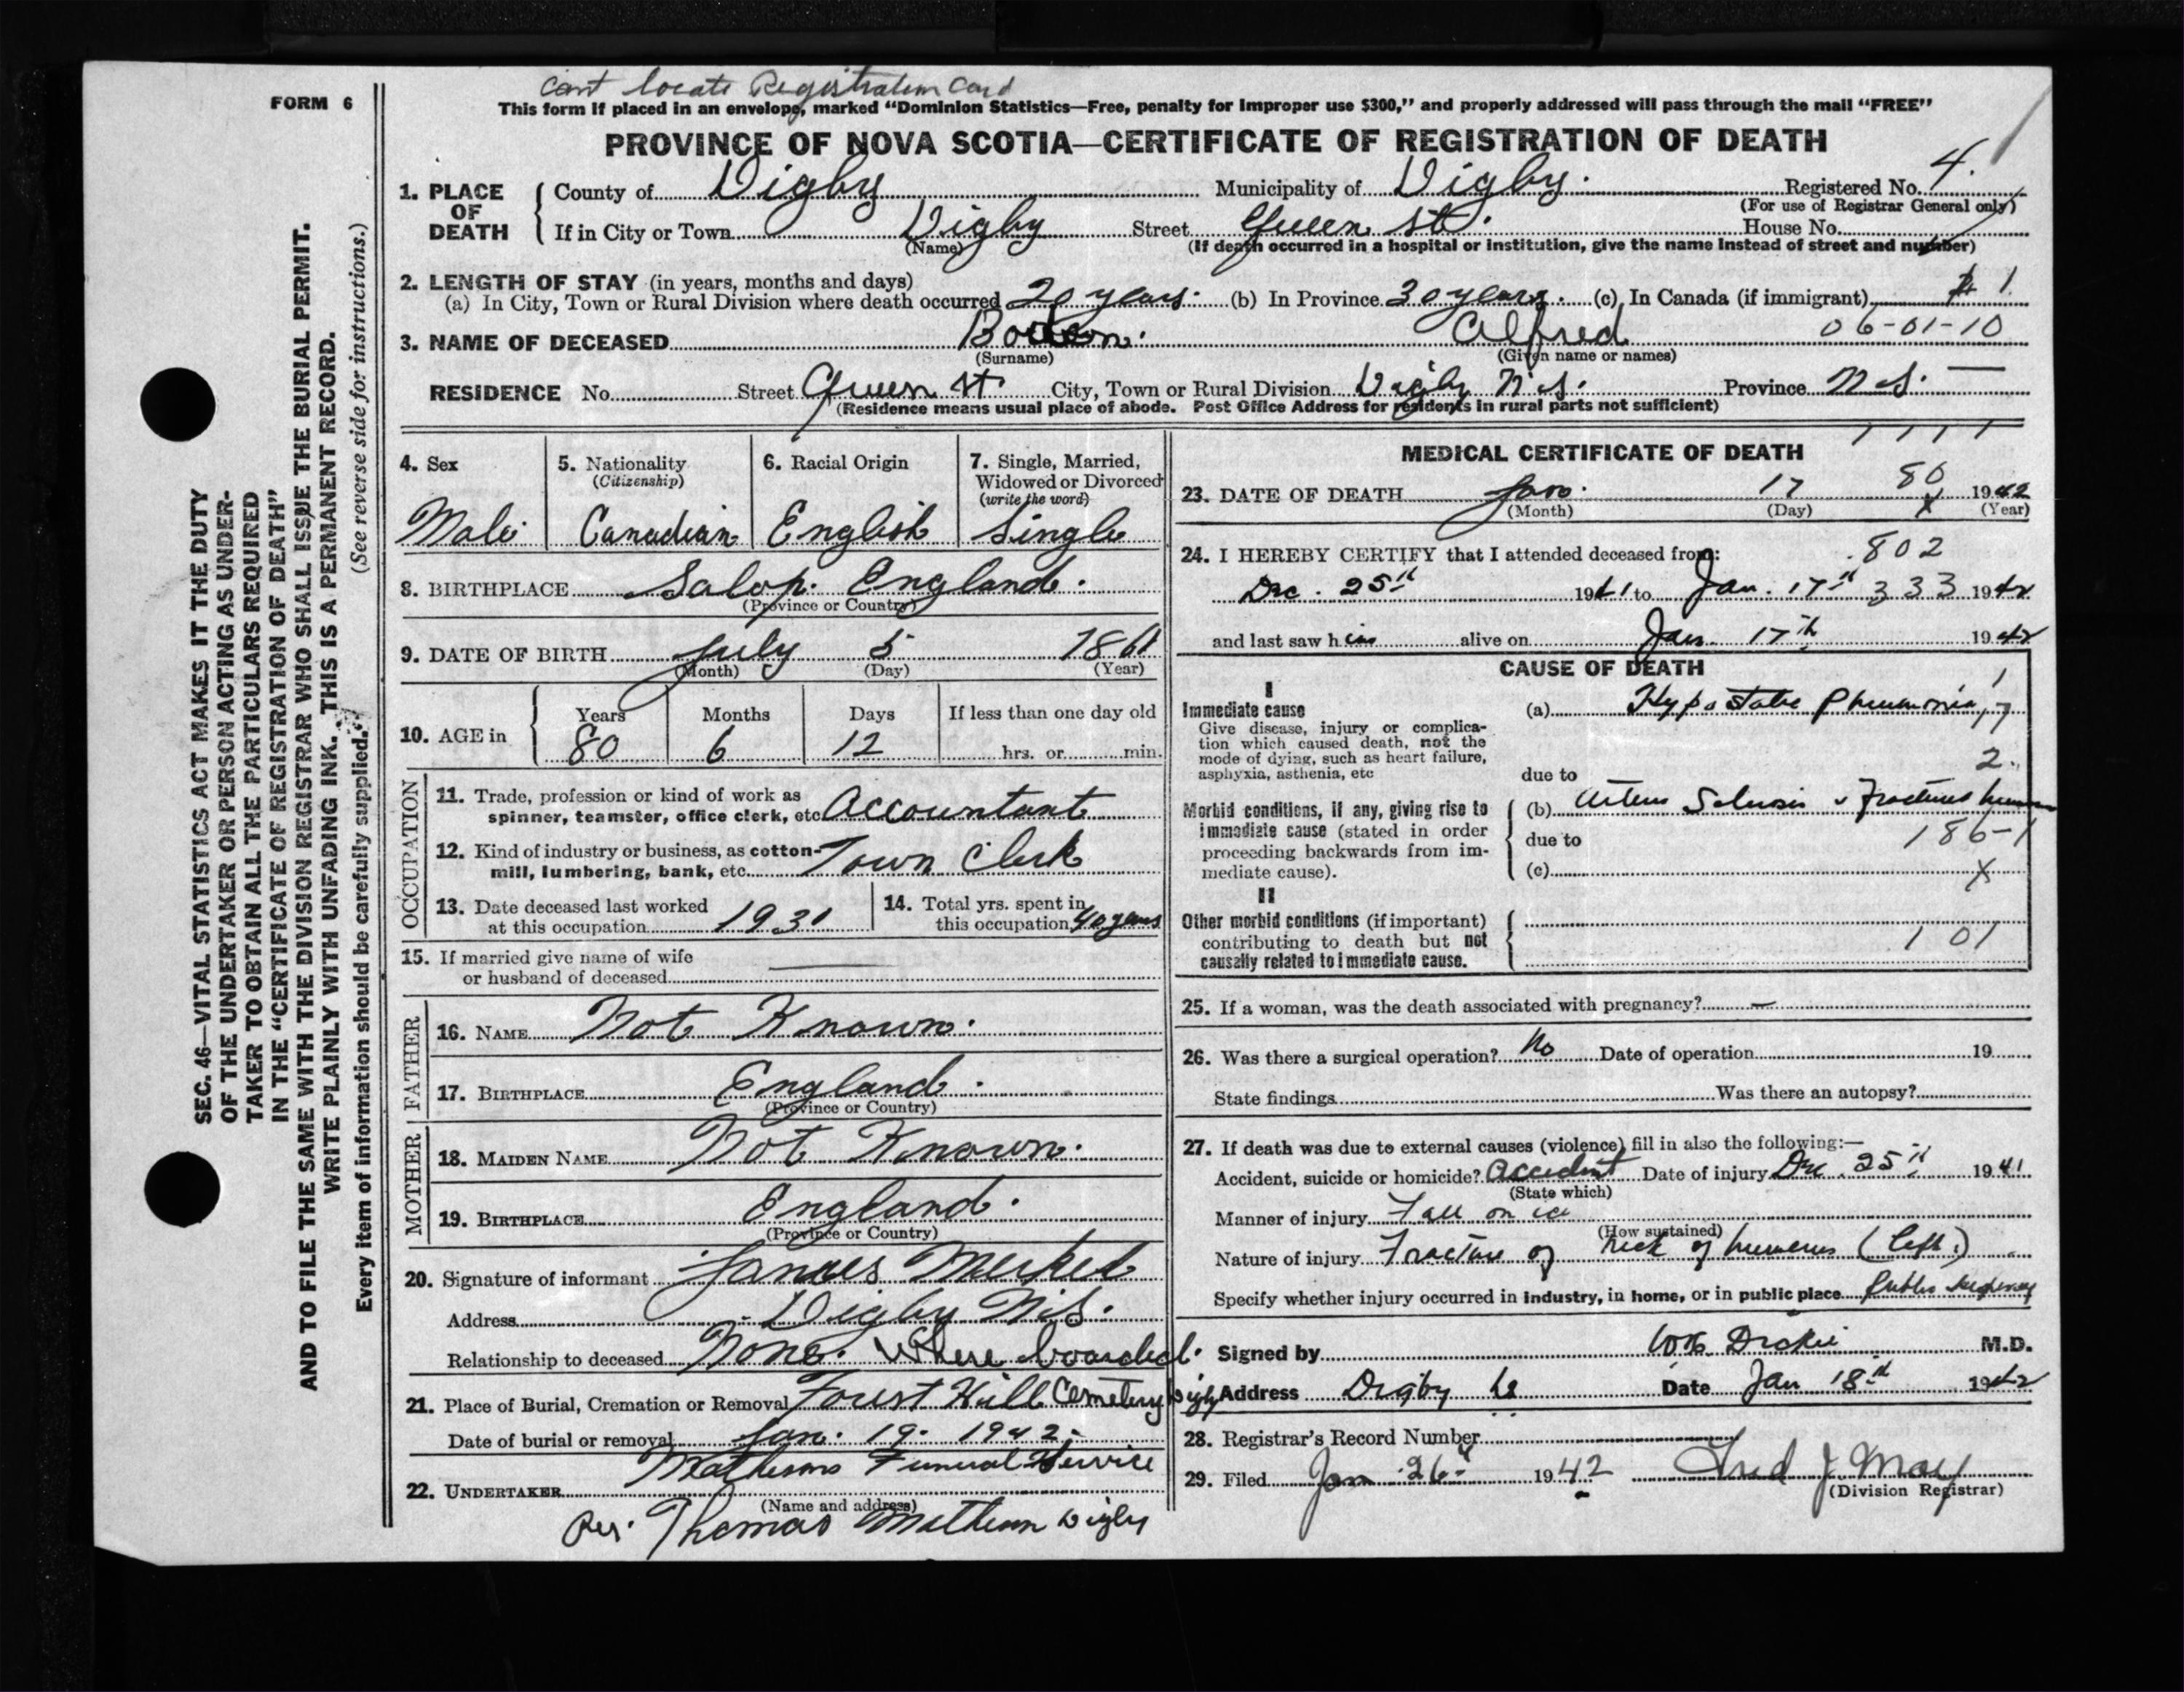 Cant locate Registration Card
FORM 6
This form if placed in an envelope, marked “Dominion Statistics—Free, penalty for improper use $300,” and properly addressed will pass through the mail “FREE”
PROVINCE OF NOVA SCOTIA—CERTIFICATE OF REGISTRATION OF DEATH
1. PLACE OF DEATH
County of Digby Municipality of Digby. Registered No. 4
(For use of Registrar General only)
If in City or Town Digby Street Queen St. House No.
(Name) (If death occurred in a hospital or institution, give the name instead of street and number)
2. LENGTH OF STAY (in years, months and days)
(a) In City, Town or Rural Division where death occurred 20 years. (b) In Province 30 years. (c) In Canada (if immigrant) 1
3. NAME OF DECEASED Alfred 06-01-10
(Surname) (Given name or names)
RESIDENCE No. Street Queen St City, Town or Rural Division Digby N.S. Province N.S.
(Residence means usual place of abode. Post Office Address for residents in rural parts not sufficient)
SEC. 46—VITAL STATISTICS ACT MAKES IT THE DUTY
OF THE UNDERTAKER OR PERSON ACTING AS UNDER-
TAKER TO OBTAIN ALL THE PARTICULARS REQUIRED
IN THE “CERTIFICATE OF REGISTRATION OF DEATH”
AND TO FILE THE SAME WITH THE DIVISION REGISTRAR WHO SHALL ISSUE THE BURIAL PERMIT.
WRITE PLAINLY WITH UNFADING INK. THIS IS A PERMANENT RECORD.
Every item of information should be carefully supplied. (See reverse side for instructions.)
4. Sex
Male
5. Nationality
(Citizenship)
Canadian
6. Racial Origin
English
7. Single, Married,
Widowed or Divorced
(write the word)
Single
8. BIRTHPLACE Salop. England.
(Province or Country)
9. DATE OF BIRTH July 5 1861
(Month) (Day) (Year)
10. AGE in
Years Months Days If less than one day old
80 6 12 hrs. or min.
OCCUPATION
11. Trade, profession or kind of work as
spinner, teamster, office clerk, etc. Accountant
12. Kind of industry or business, as cotton-
mill, lumbering, bank, etc. Town Clerk
13. Date deceased last worked
at this occupation 1931
14. Total yrs. spent in
this occupation 40 years
15. If married give name of wife
or husband of deceased
FATHER
16. NAME Not Known.
17. BIRTHPLACE England.
(Province or Country)
MOTHER
18. MAIDEN NAME Not Known.
19. BIRTHPLACE England.
(Province or Country)
20. Signature of informant
Address Digby N.S.
Relationship to deceased None. Where boarded.
21. Place of Burial, Cremation or Removal Forest Hill Cemetery Digby
Date of burial or removal Jan. 19. 1942.
Mathesons Funeral Service
22. UNDERTAKER
(Name and address)
Per. Thomas Matheson Digby
MEDICAL CERTIFICATE OF DEATH
1 1 1 1
80
23. DATE OF DEATH Jan. 17 1942
(Month) (Day) X (Year)
24. I HEREBY CERTIFY that I attended deceased from: 802
Dec. 25th 1941 to Jan. 17th 333 1942
and last saw him alive on Jan. 17th 1942
CAUSE OF DEATH
I
Immediate cause
Give disease, injury or complica-
tion which caused death, not the
mode of dying, such as heart failure,
asphyxia, asthenia, etc
(a) Hypostatic Pneumonia,
1
7
2.
due to
Morbid conditions, if any, giving rise to
immediate cause (stated in order
proceeding backwards from im-
mediate cause).
(b) Arterio Sclerosis & Fractured humerus
due to 186-1
(c) X
II
Other morbid conditions (if important)
contributing to death but not
causally related to immediate cause.
101
25. If a woman, was the death associated with pregnancy? —
26. Was there a surgical operation? No Date of operation 19
State findings Was there an autopsy?
27. If death was due to external causes (violence) fill in also the following:—
Accident, suicide or homicide? Accident Date of injury Dec. 25th 1941
(State which)
Manner of injury Fall on ice
(How sustained)
Nature of injury Fracture of neck of humerus (left.)
Specify whether injury occurred in industry, in home, or in public place Public highway
Signed by Dickie M.D.
Address Digby Date Jan 18th 1942
28. Registrar's Record Number
29. Filed Jan 26 1942 Fred J. May
(Division Registrar)